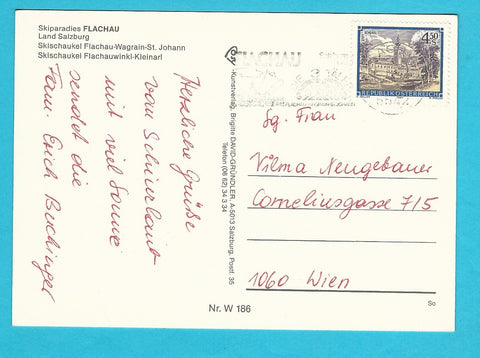 Skiparadies FLACHAU
Land Salzburg
Skischaukel Flachau-Wagrain-St. Johann
Skischaukel Flachauwinkl-Kleinarl
Herzliche Grüße
vom Schiurlaub
mit viel Sonne
sendet die
Fam. Erich Buchinger
Kunstverlag, Brigitte DAVID-GRÜNDLER, A-5013 Salzburg, Postf. 35
Telefon (06 62) 34 3 34
FLACHAU
4.50
REPUBLIK ÖSTERREICH
Sg. Frau
Vilma Neugebauer
Corneliusgasse 7/5
1060 Wien
Nr. W 186
So